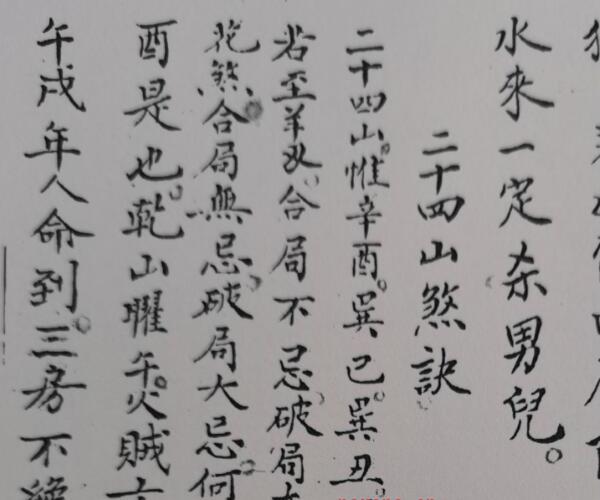 水來一定杀男兒。
二十四山煞訣
二十四山。惟辛酉。巽巳。巽丑。
若至羊刃。合局不忌。破局
花煞。合局無忌。破局大忌。何
酉是也。乾山曜午。火賊
午戌年人命到。三房不